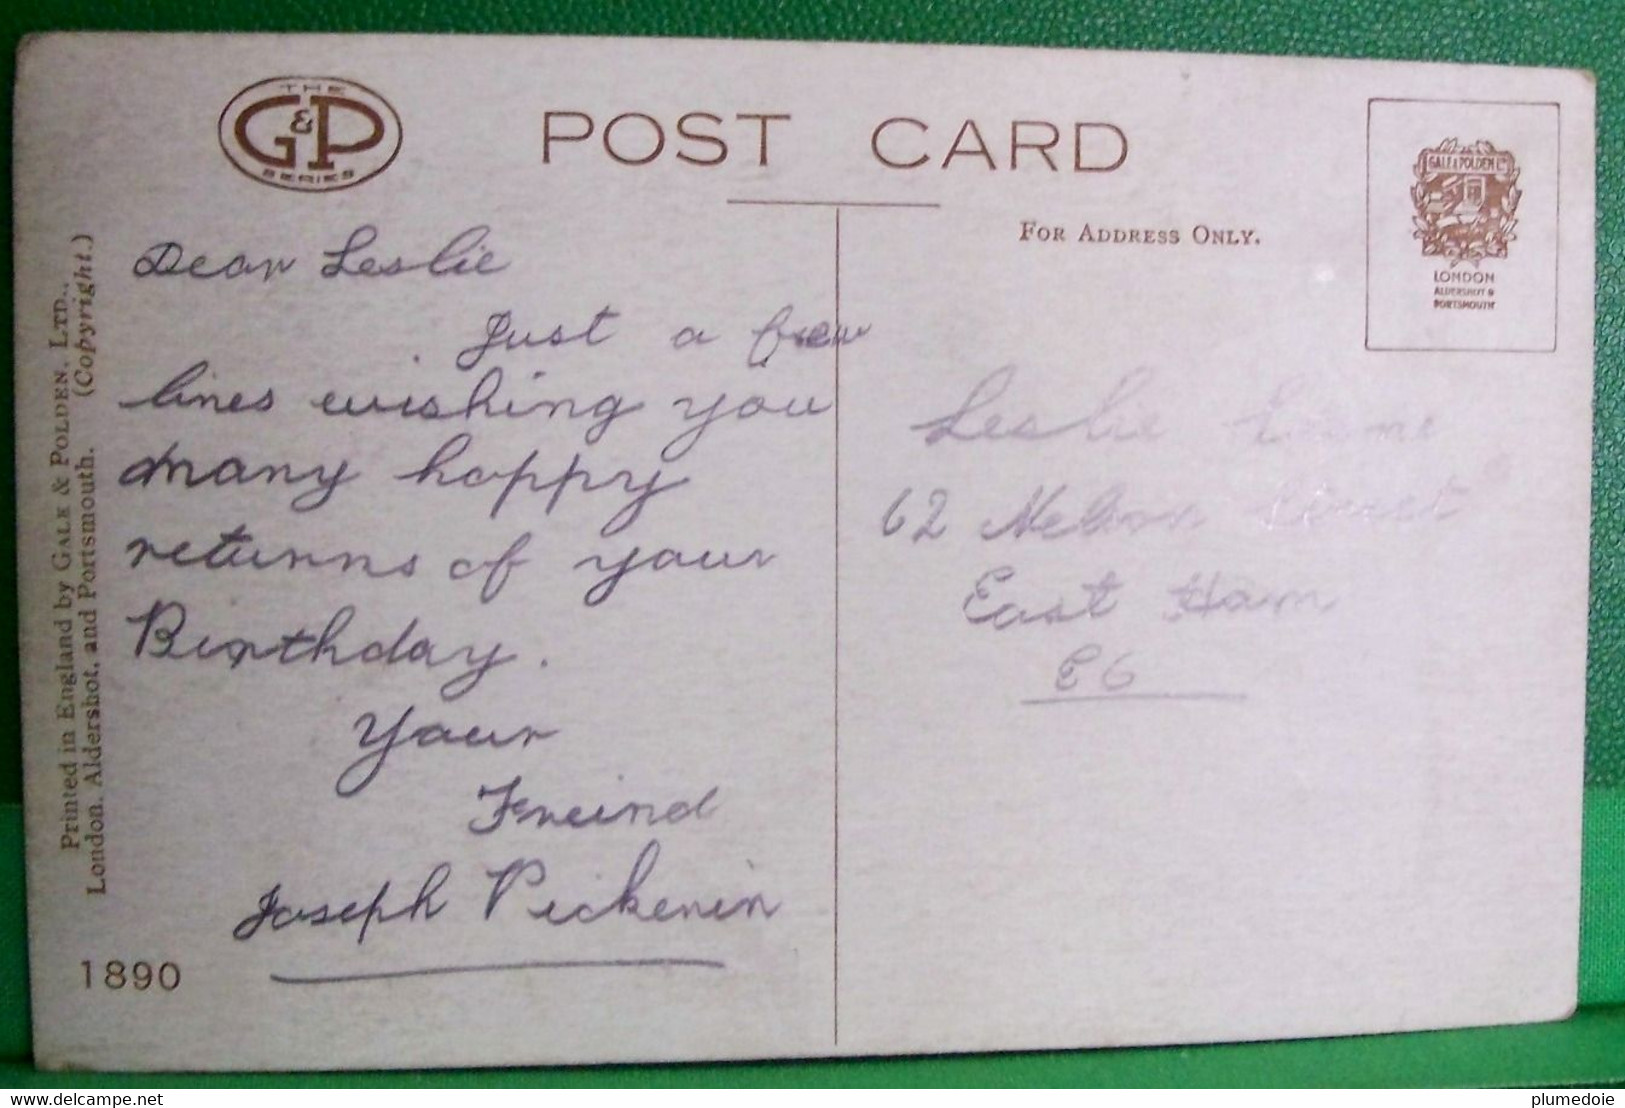 THE
G&P
SERIES
POST CARD
FOR ADDRESS ONLY.
GALE & POLDEN LTD
LONDON
ALDERSHOT &
PORTSMOUTH
Printed in England by GALE & POLDEN, LTD.,
London, Aldershot, and Portsmouth. (Copyright.)
Dear Leslie
Just a few
lines wishing you
many happy
returns of your
Birthday.
Your
Freind
Joseph Pickenin
1890
Leslie
62 Nelson Street
East Ham
E6
delcampe.net
plumedoie